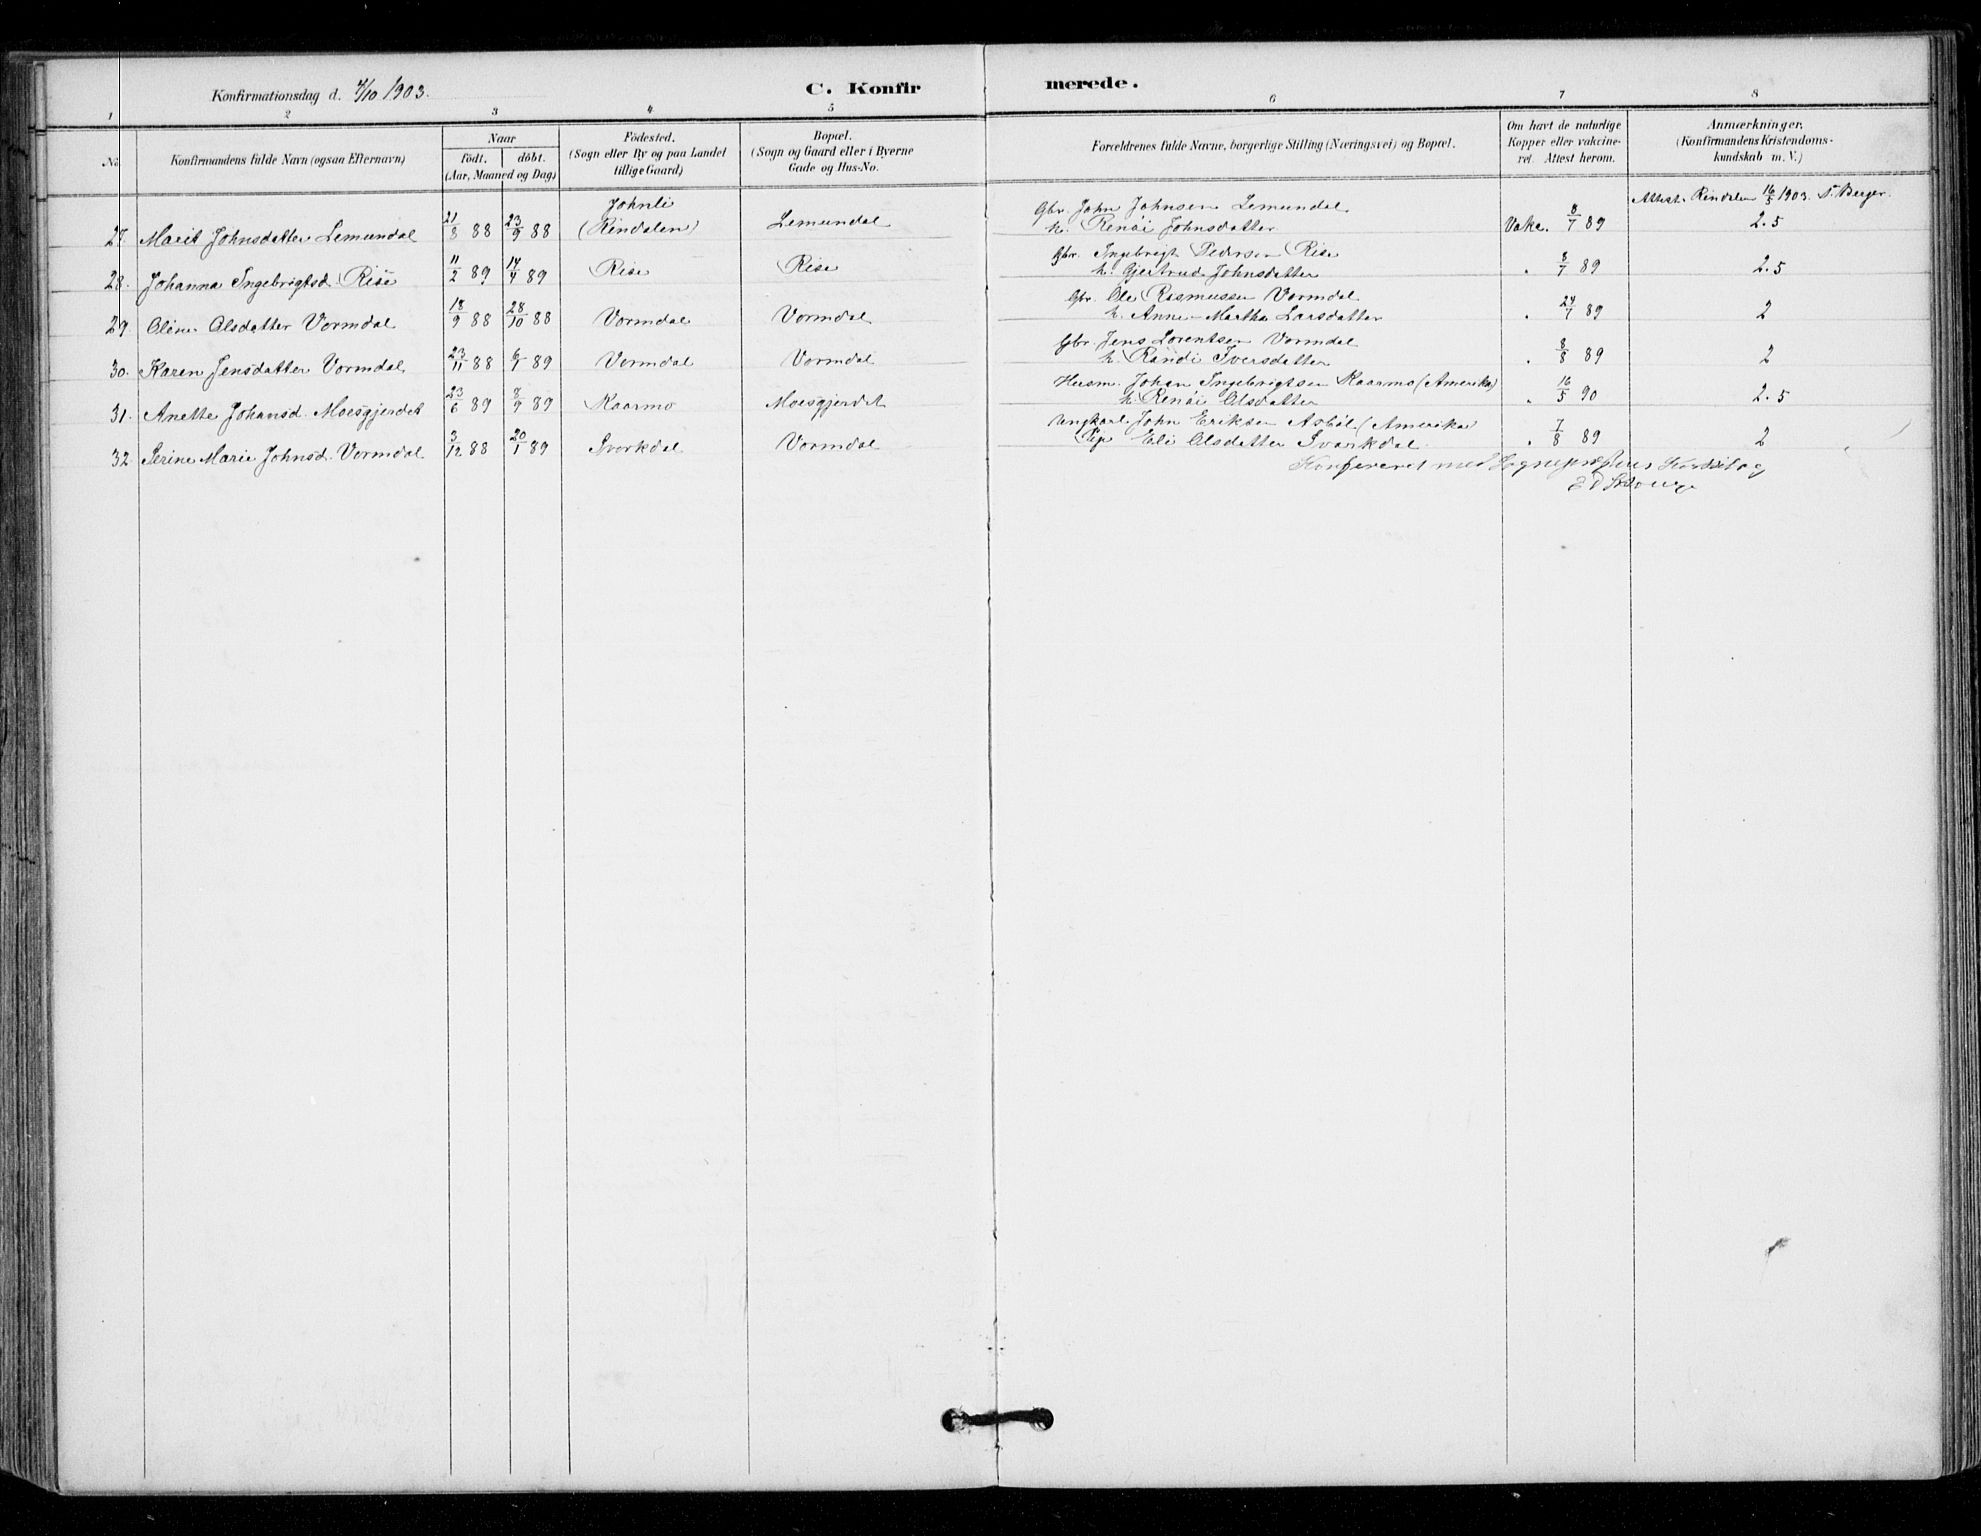 Konfirmationsdag d. 4/10 1903.
C. Konfirmerede.
1 2 3 4 5 6 7 8
No. Konfirmandens fulde Navn (ogsaa Efternavn) Naar födt. döbt. (Aar, Maaned og Dag) Födested. (Sogn eller By og paa Landet tillige Gaard) Bopæl. (Sogn og Gaard eller i Byerne Gade og Hus-No. Forældrenes fulde Navne, borgerlige Stilling (Næringsvei) og Bopæl. Om havt de naturlige Kopper eller vakcineret. Attest herom. Anmærkninger. (Konfirmandens Kristendomskundskab m. V.)
Johnli Gbr. John Johnsen Lemundal Attest. Rindalen 16/5 1903. Berger.
27. Marit Johnsdatter Lemundal 21/8 88 23/9 88 (Rindalen) Lemundal h. Renði Johnsdatter Vakc. 8/7 89 2.5
Gbr. Ingebrigt Pedersen Rise
28. Johanna Ingebrigtsd. Rise 11/2 89 14/4 89 Rise Rise h. Gjertrud Johnsdatter " 8/7 89 2.5
Gbr. Ole Rasmussen Vormdal
29. Oline Olsdatter Vormdal 18/9 88 28/10 88 Vormdal Vormdal h. Anne Martha Larsdatter " 24/7 89 2
Gbr. Jens Lorentsen Vormdal
30. Karen Jensdatter Vormdal 23/11 88 6/1 89 Vormdal Vormdal h. Randi Iversdatter " 8/8 89 2
Husm. Johan Ingebrigtsen Kaarmo (Amerika)
31. Anette Johansd. Moesgjerdet 23/6 89 8/9 89 Kaarmo Moesgjerdet h. Olsdatter " 16/5 90 2.5
Ungkarl John Eriksen Asböl (Amerika
32. Serine Marie Johnsd. Vormdal 3/12 88 20/1 89 Svorkdal Vormdal Pige Eli Olsdatter Svorkdal. " 7/8 89 2
Konfereret med Sogneprestens